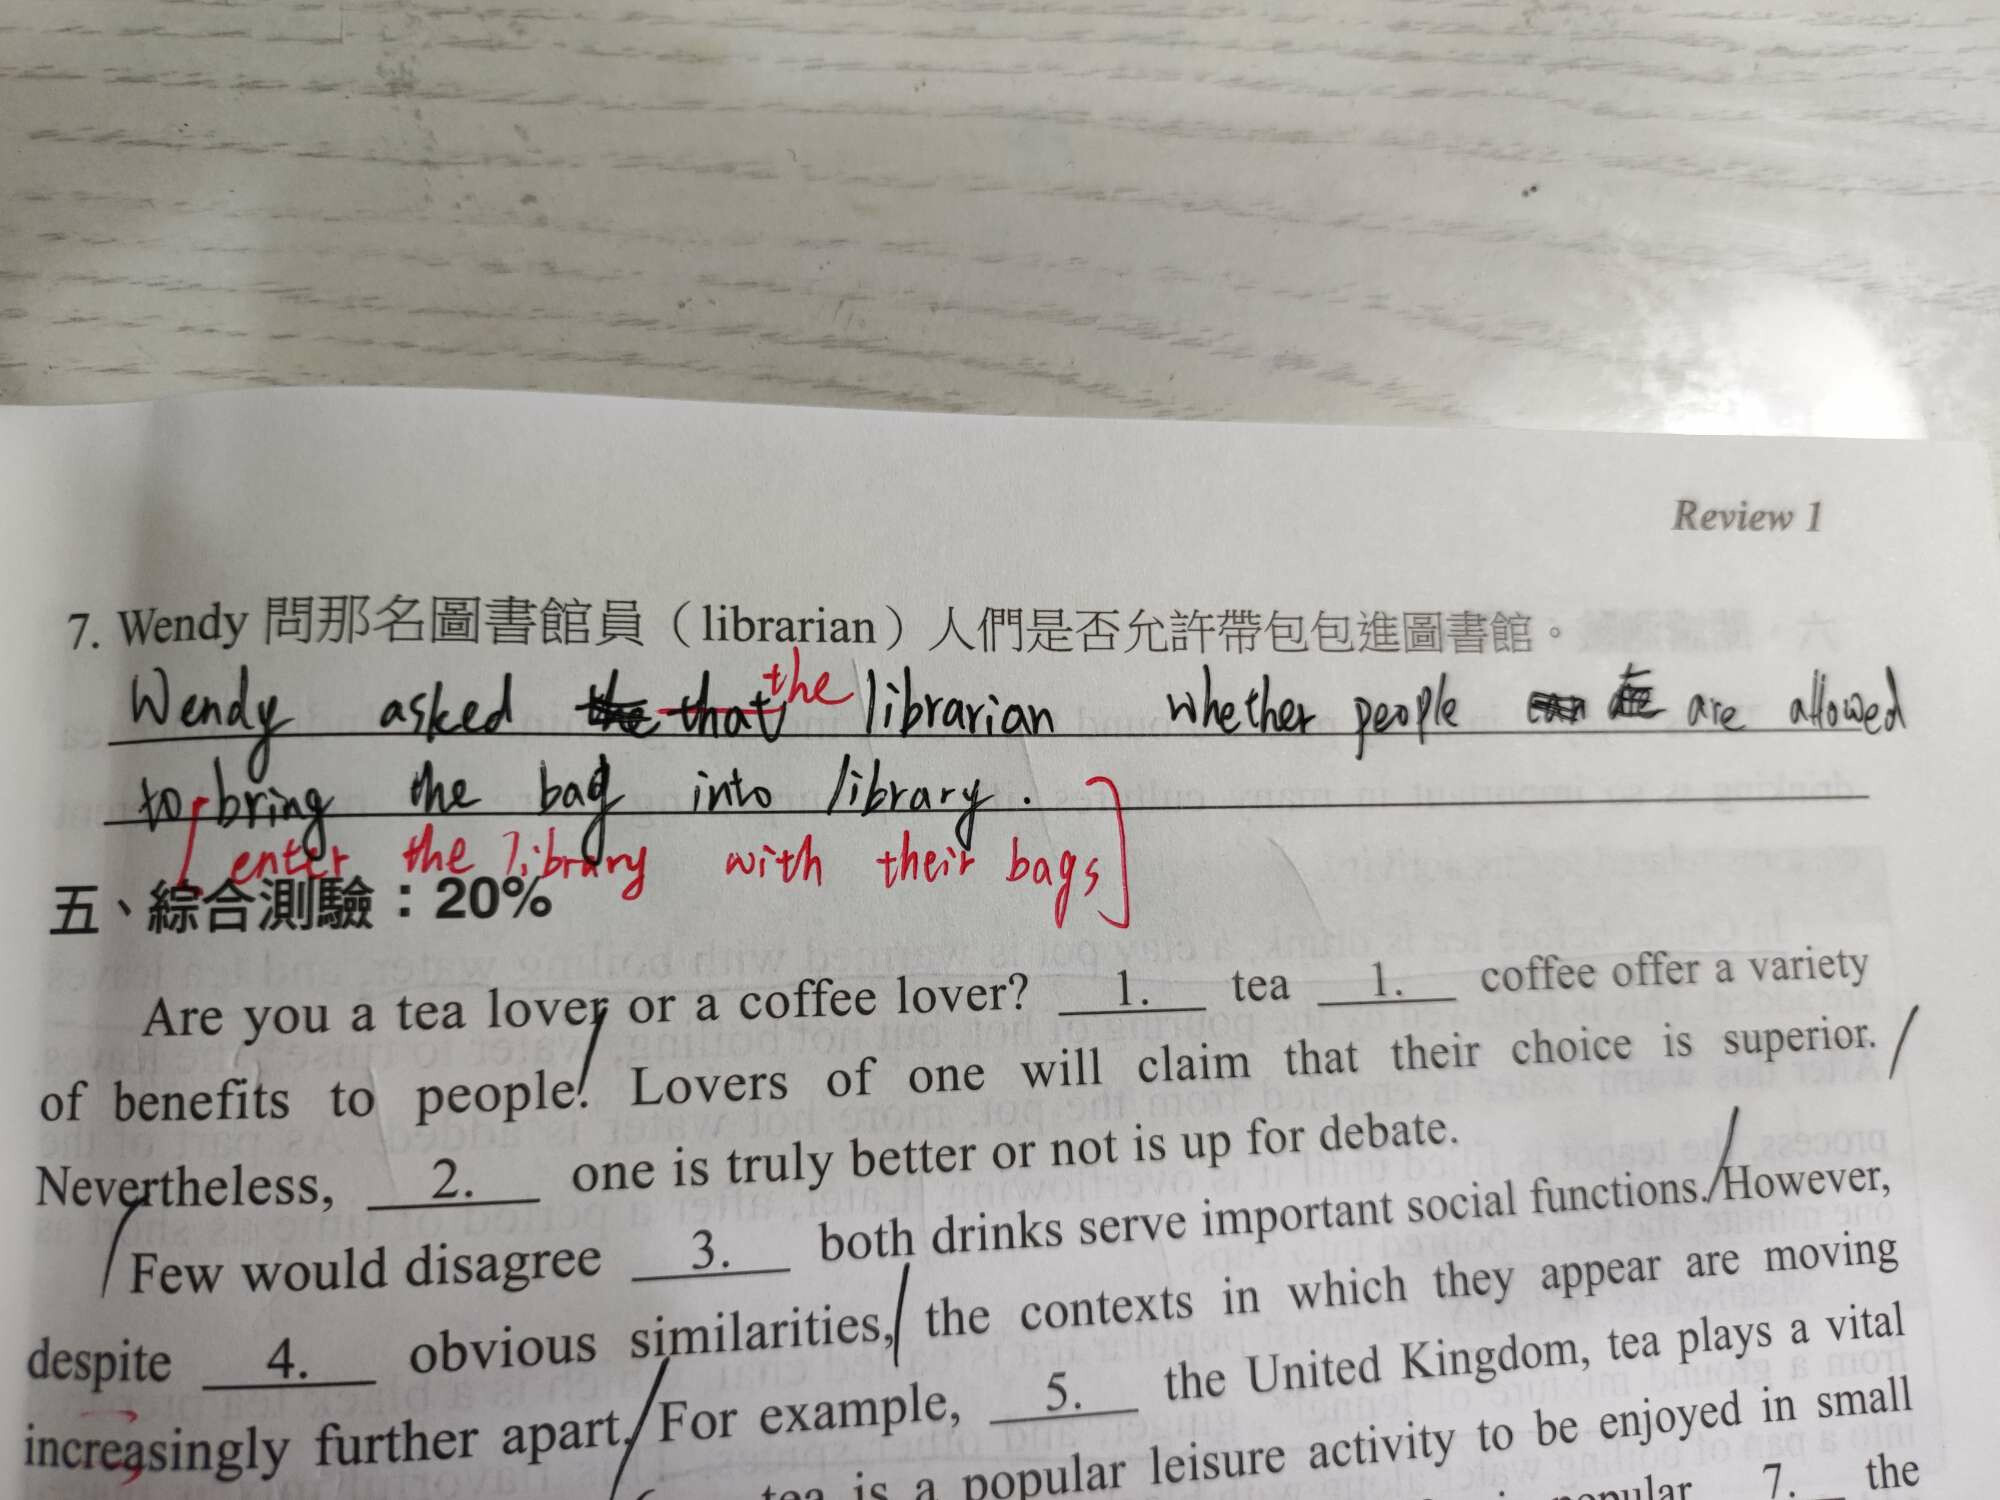 Review 1
7. Wendy 問那名圖書館員（librarian）人們是否允許帶包包進圖書館。
the
Wendy asked that librarian whether people are allowed
to bring the bag into library.
enter the library with their bags
五、綜合測驗：20%
Are you a tea lover or a coffee lover? 1. tea 1. coffee offer a variety
of benefits to people. Lovers of one will claim that their choice is superior.
Nevertheless, 2. one is truly better or not is up for debate.
Few would disagree 3. both drinks serve important social functions. However,
despite 4. obvious similarities, the contexts in which they appear are moving
increasingly further apart. For example, 5. the United Kingdom, tea plays a vital
tea is a popular leisure activity to be enjoyed in small
7. the